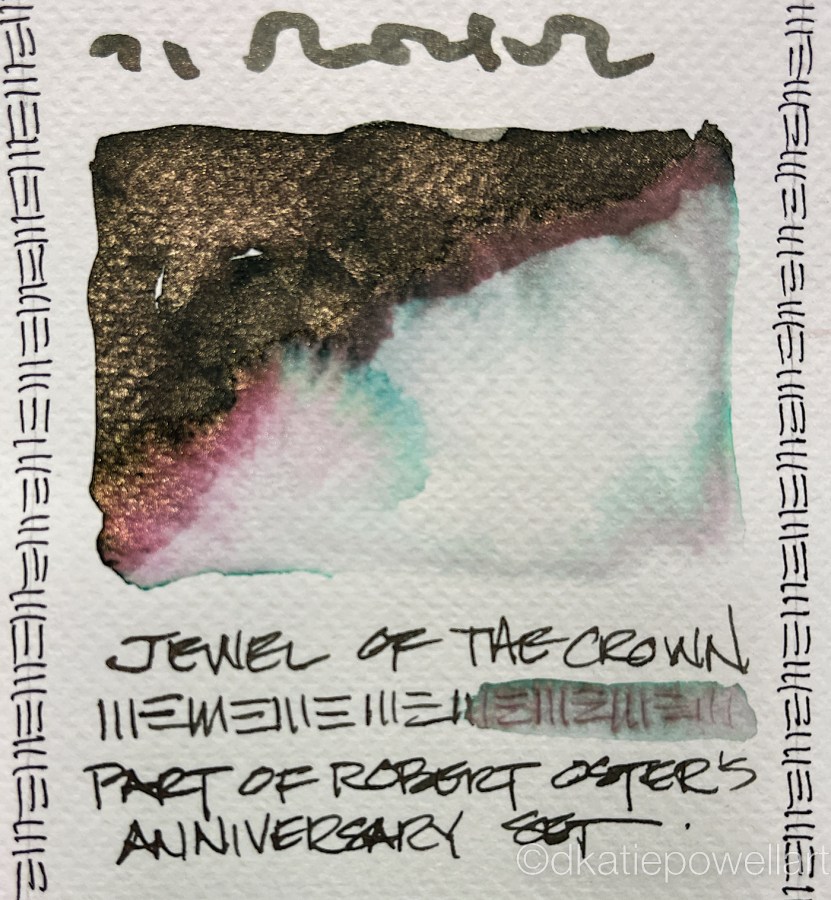 JEWEL OF THE CROWN
PART OF ROBERT OSTER'S
ANNIVERSARY SET.
©dkatiepowellart